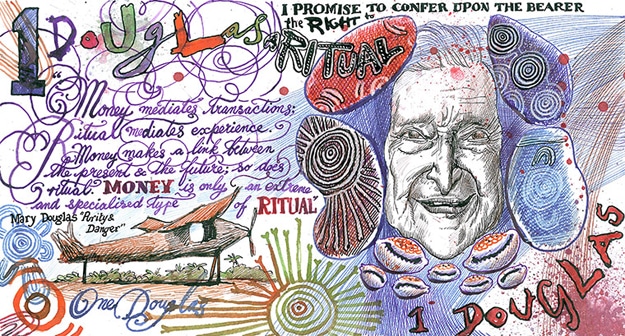 1 DOUGLAS
I PROMISE TO CONFER UPON THE BEARER
the RIGHT to
a RITUAL
"Money mediates transactions;
Ritual mediates experience.
Money makes a link between
the present & the future; so does
ritual. MONEY is only an extreme
and specialised type of RITUAL"
Mary Douglas "Purity &
Danger"
One Douglas
1 DOUGLAS